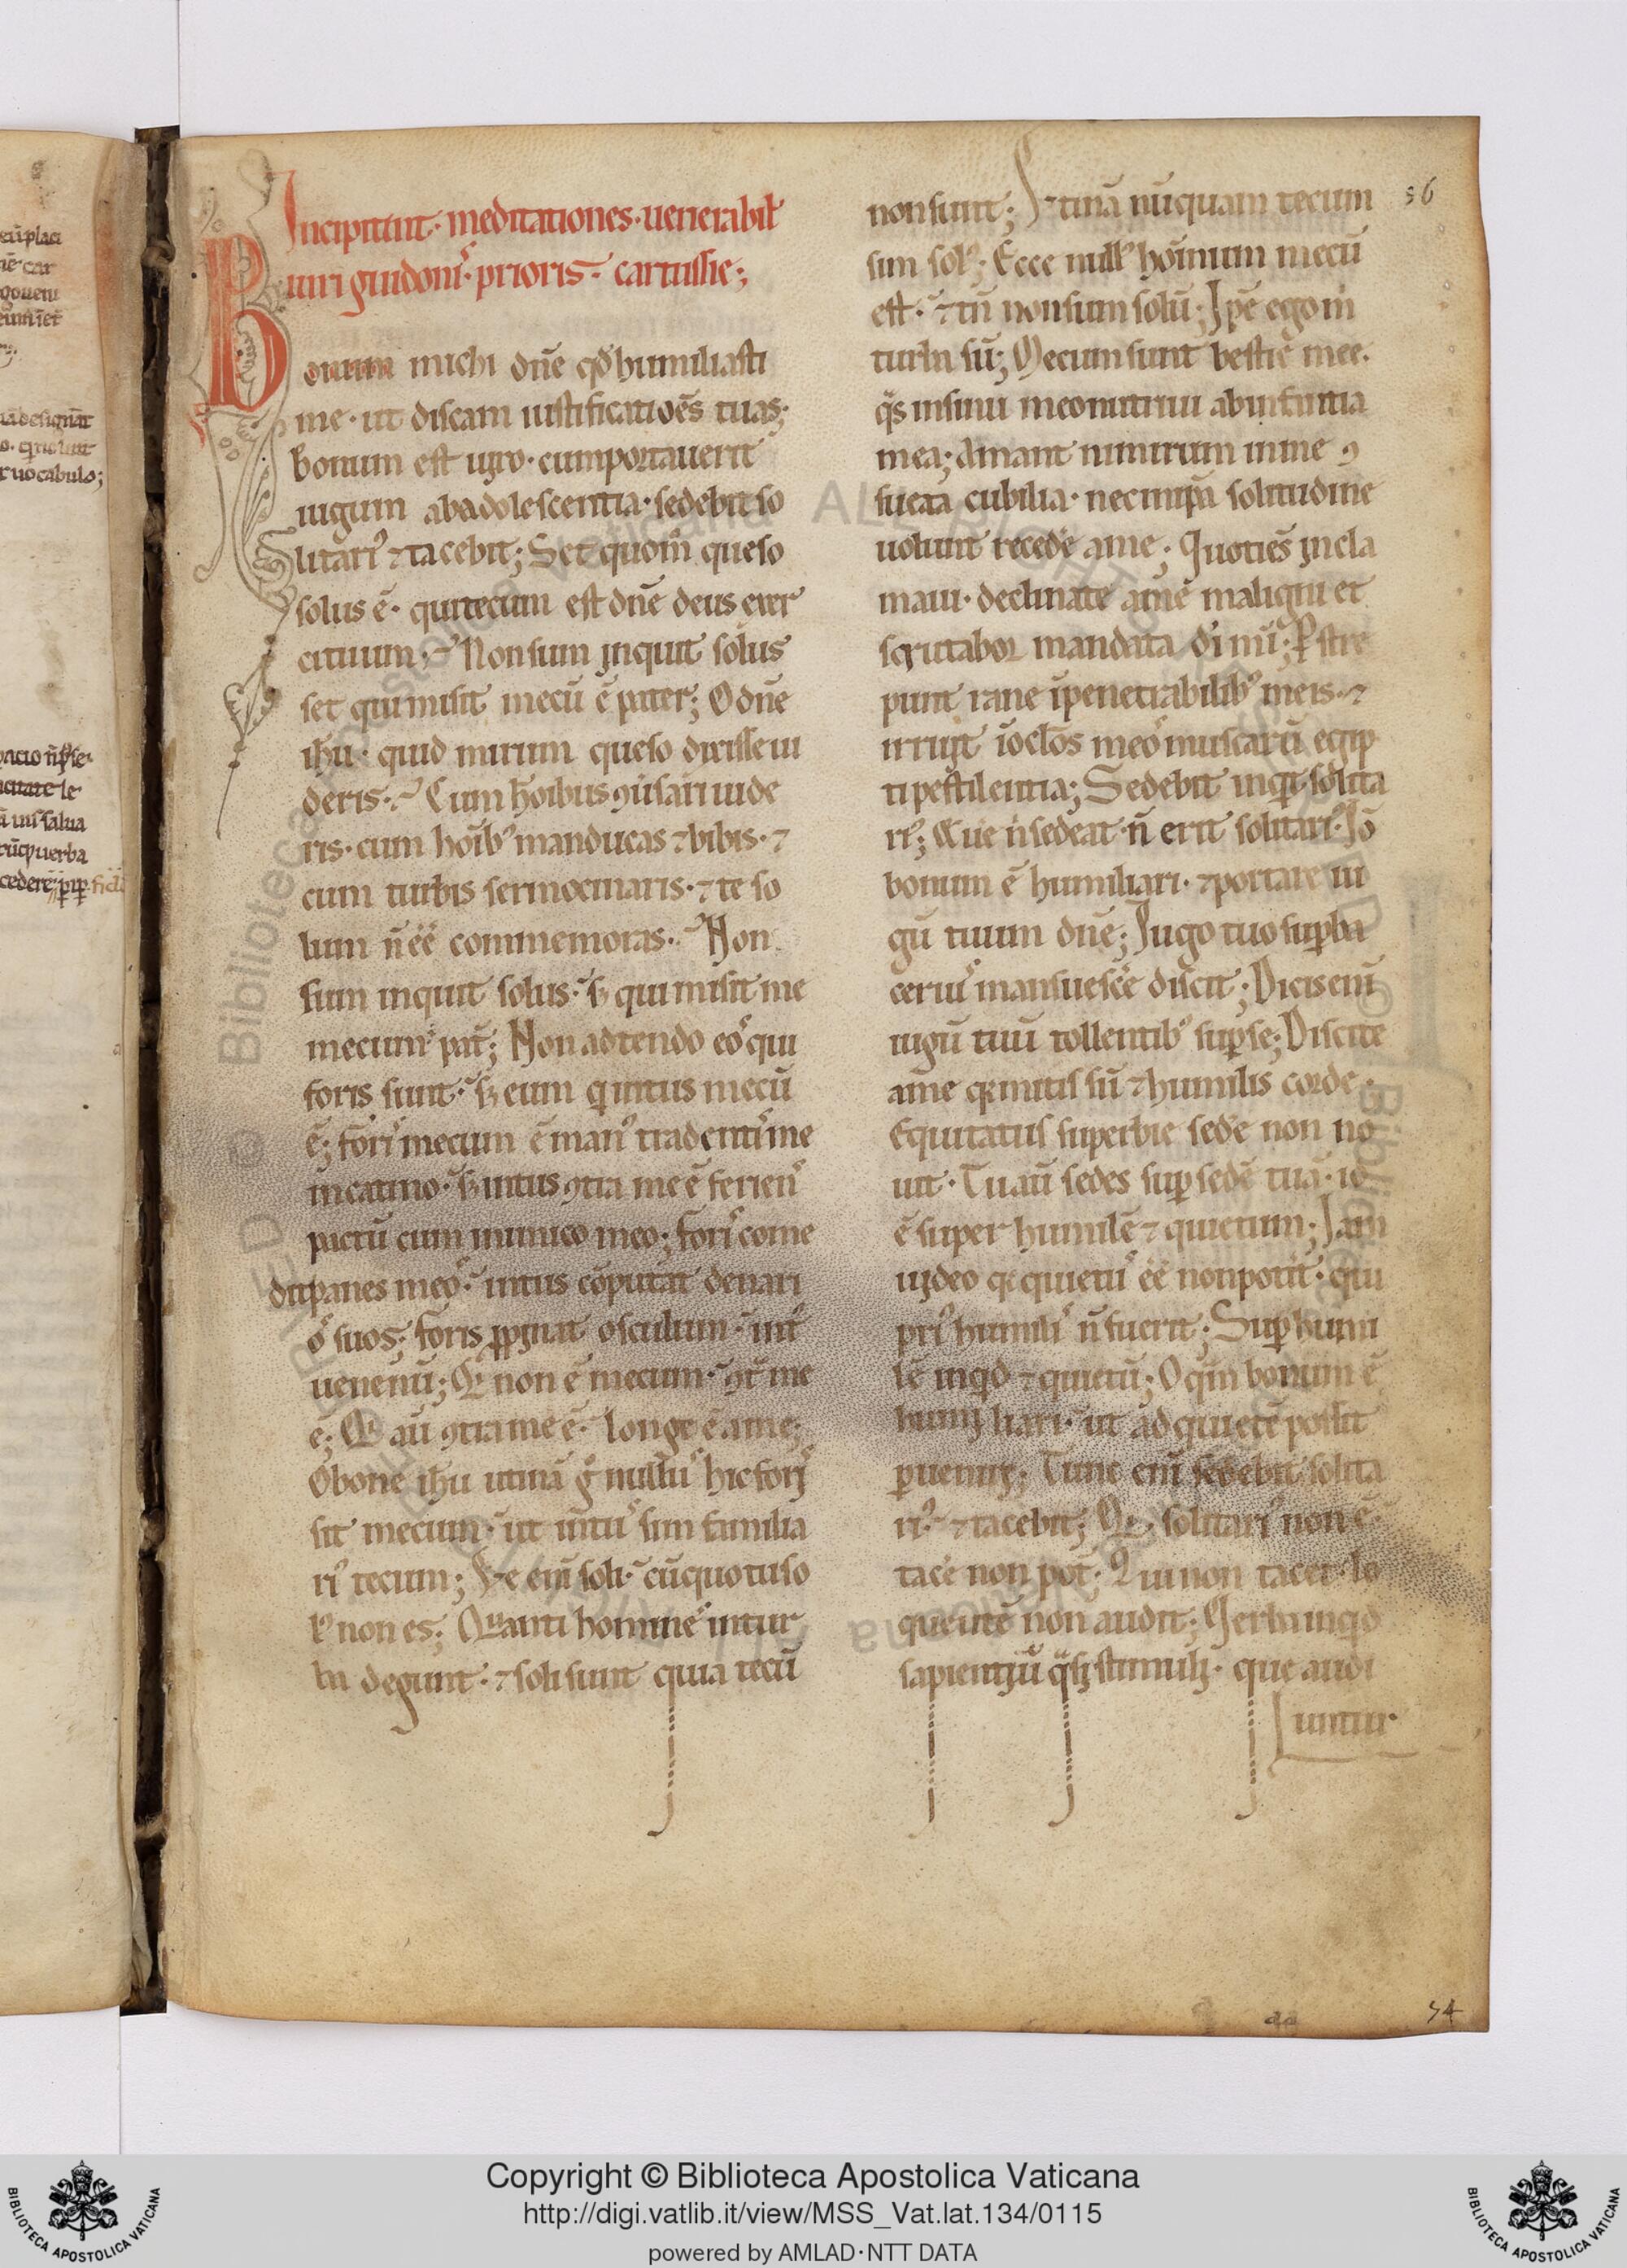 Incipiunt· meditationes· uenerabil̄
uiri guidonis· prioris· cartusie;
Bonum michi dn̄e qd̄ humiliasti
me· ut discam iustificatiōes tuas;
bonum est uiro· cum portauerit
iugum ab adolescentia· sedebit so
litari᾽ ⁊ tacebit; Set quom̄ queso
solus ē· qui tecum est dn̄e deus exer
cituum; Non sum inquit solus
set qui misit mecū ē pater; O dn̄e
ih̄u· quid mirum queso dixisse ui
deris· Cum hoībus ꝯuersari uide
ris· cum hoīb᾽ manducas ⁊ bibis· ⁊
cum turbis sermocinaris· ⁊ te so
lum n̄ eē commemoras· Non
sum inquit solus· s; qui misit me
mecum pat̄; Non adtendo eos qui
foris sunt· s; eum q intus mecū
ē; fori᾽ mecum ē man᾽ tradent᾽ me
in catino· s; intus ꝯtra me ē ferien᾽
pactū cum inimico meo; fori᾽ come
dit panes meo᾽· intus cōputat denari
o᾽ suos; foris ꝓpinat osculum· int᾽
uenenū; Q non ē mecum· ꝯt̄ me
ē; Q aū ꝯtra me ē· longe ē a me;
O bone ih̄u utinā g᾽ nullu᾽ hic fori᾽
sit mecum· ut intu᾽ sim familia
ri᾽ tecum; Ve enī soli· cū quo tu so
l᾽ non es; Quanti homine᾽ in tur
ba degunt· ⁊ soli sunt quia tecū
non sunt; Utinā nūquam tecum
sim sol᾽; Ecce null᾽ hoīnum mecū
est· ⁊ tn̄ non sum solū; Ip̄e ego m̄
turba sū; Mecum sunt bestie mee·
q̄s in sinu meo nutriui ab infantia
mea; Amant nimirum in me ꝯ
sueta cubilia· nec in ip̄a solitudine
uolunt recedē a me; Quotiēs incla
maui· declinate a mē maligni et
scrutabor mandata di᾽ mi᾽; Per stre
punt rane īpenetrabilib᾽ meis· ⁊
irruit ī oclōs meo᾽ muscarū egip
ti pestilentia; Sedebit inqt solita
ri᾽; Qui n̄ sedeat· n̄ erit solitari᾽· Iō
bonum ē humiliari· ⁊ portare iu
gū tuum dn̄e; Iugo tuo suꝑba
ceruix mansuescē discit; Dicis enī
iugū tuū tollentib᾽ suꝑ se; Discite
a me q mitis sū ⁊ humilis corde·
Equitatus superbie sedē non no
uit· Tu aū sedes suꝑ sedē tuā· id
ē super humilē ⁊ quietum; Iam
uideo q quietu᾽ eē non potit· qui
pri᾽ humili᾽ n̄ fuerit; Suꝑ humi
lē inqd ⁊ quietū; O qm bonum ē
humiliari· ut ad quietē possit
ꝑuenire; Tunc enī sedebit solita
ri᾽· ⁊ tacebit; Q solitari᾽ non ē·
tacē non pot̄· Qui non tacet· lo
quentē non audit; Verba inqd
sapientiū q᾽si stimuli· que audi
untur·
36
54
Copyright © Biblioteca Apostolica Vaticana
http://digi.vatlib.it/view/MSS_Vat.lat.134/0115
powered by AMLAD·NTT DATA
BIBLIOTECA APOSTOLICA VATICANA
BIBLIOTECA APOSTOLICA VATICANA